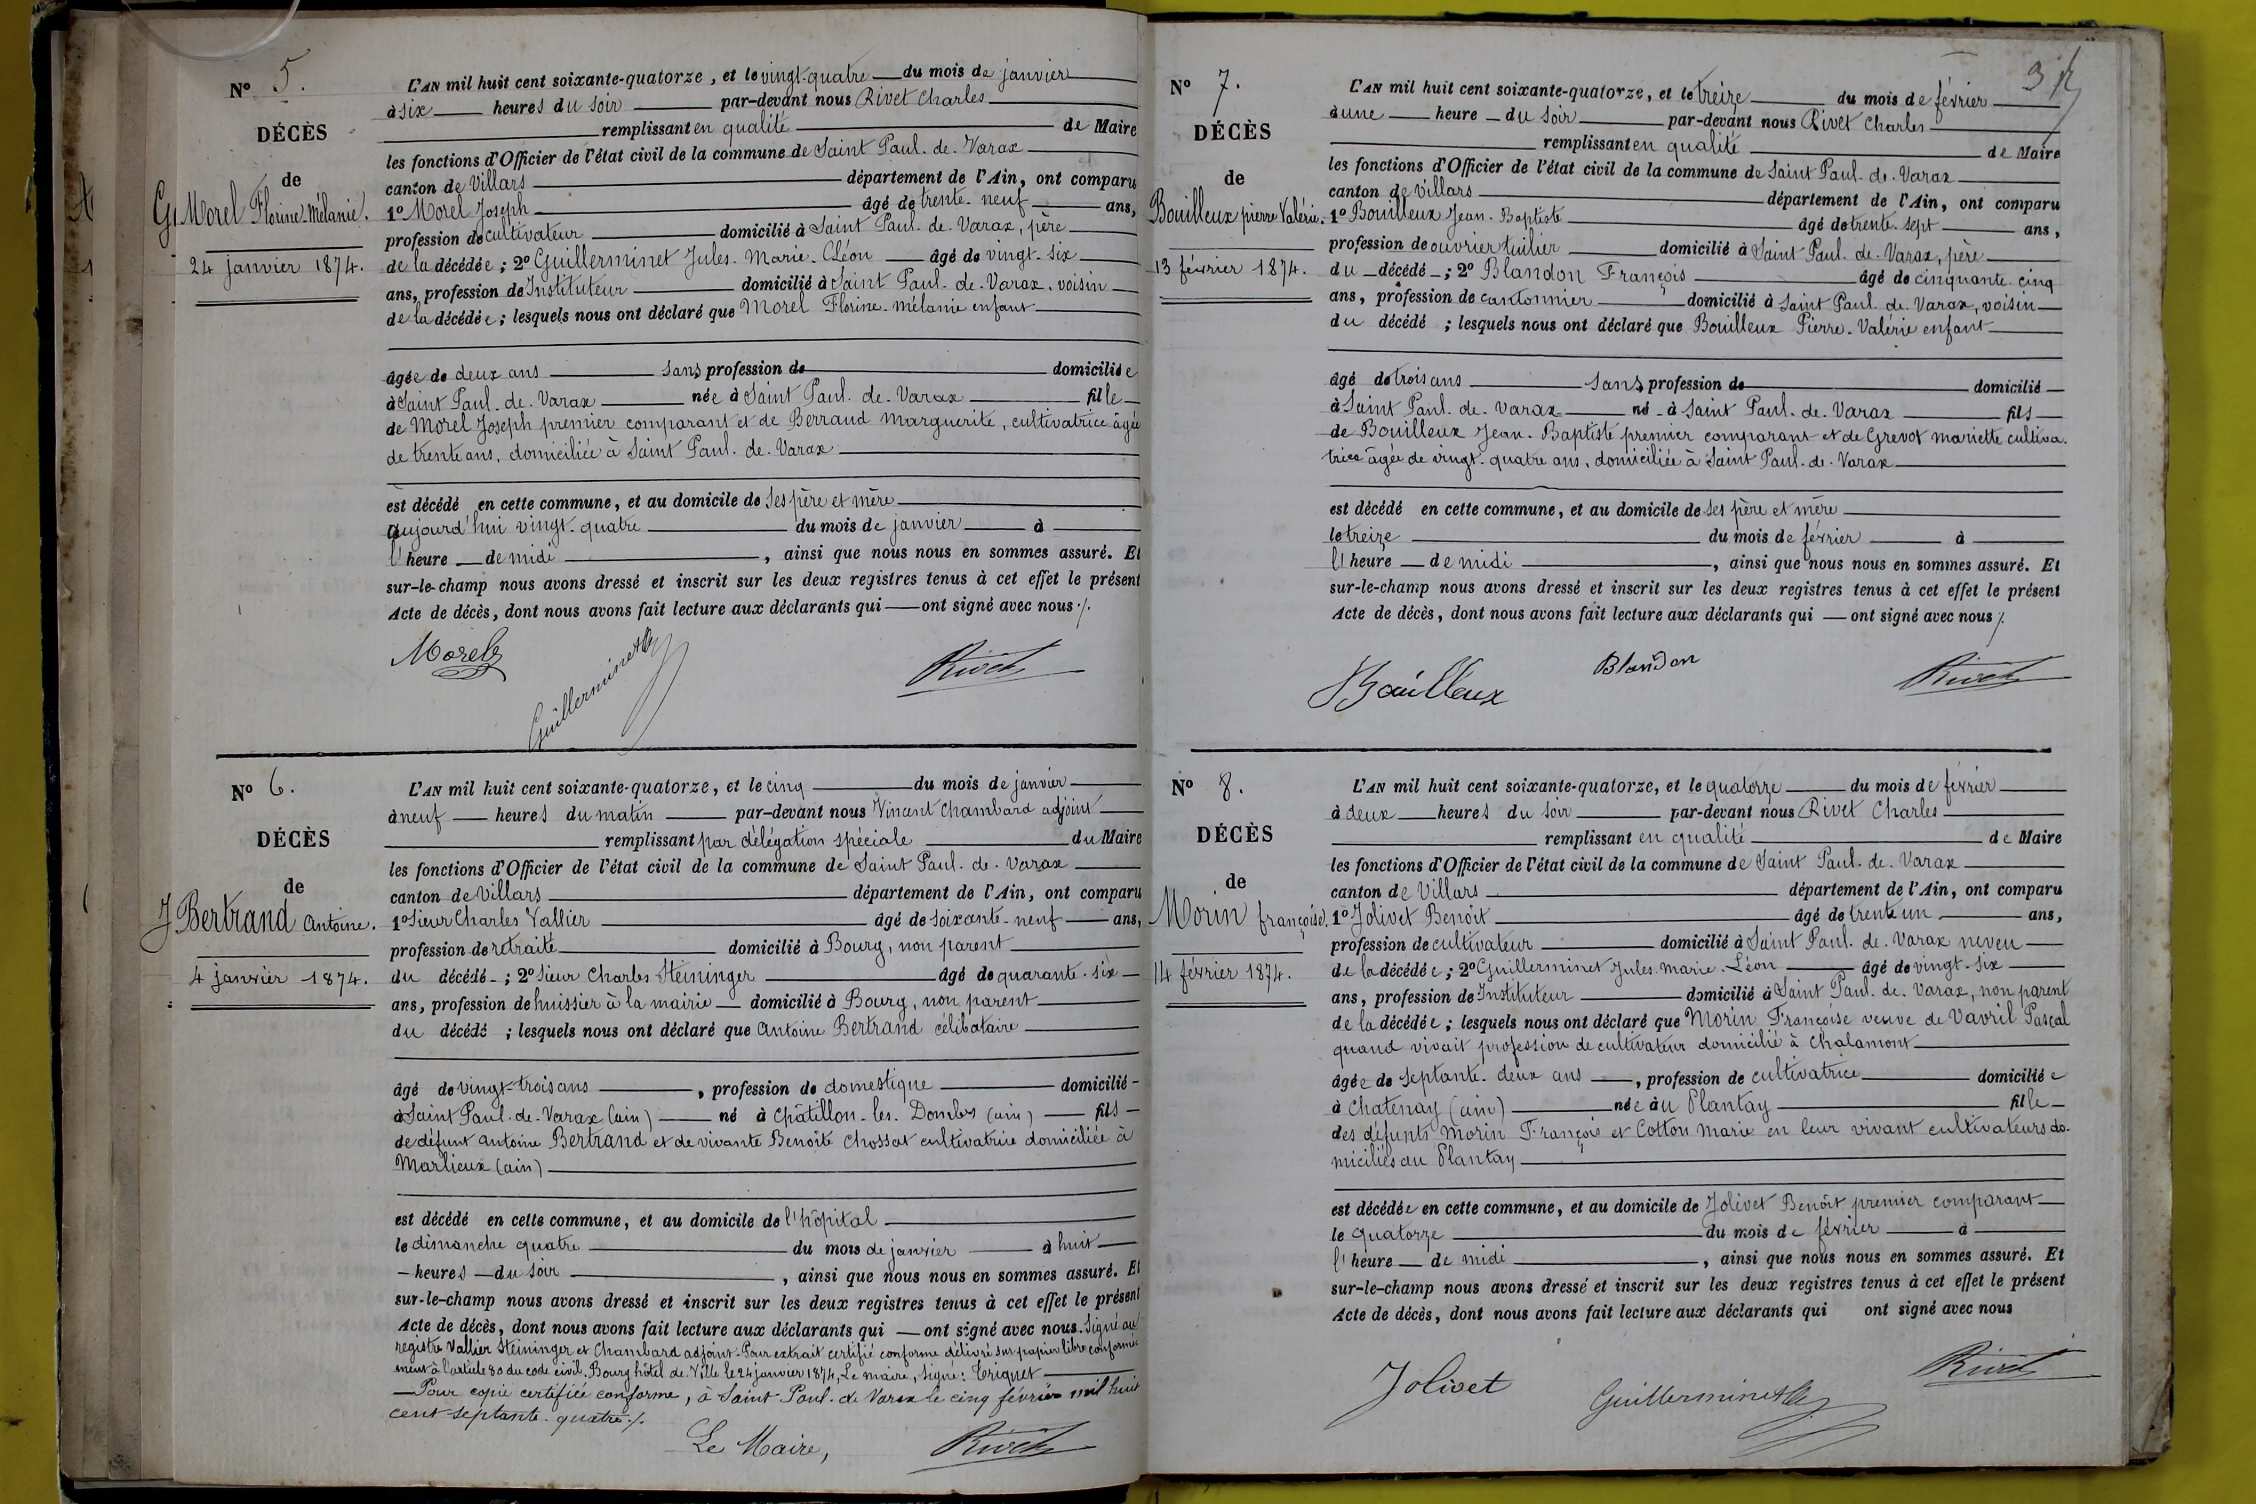 N° 5.
DÉCÈS
de
Morel Florine-Mélanie.
24 janvier 1874.
L'AN mil huit cent soixante-quatorze, et le vingt-quatre du mois de janvier
à six heures du soir par-devant nous Rivet Charles
remplissant en qualité de Maire
les fonctions d'Officier de l'état civil de la commune de Saint Paul-de-Varax
canton de Villars département de l'Ain, ont comparu
1° Morel Joseph âgé de trente-neuf ans,
profession de cultivateur domicilié à Saint Paul-de-Varax, père
de la décédée; 2° Guillerminet Jules-Marie-Cléon âgé de vingt-six
ans, profession de Instituteur domicilié à Saint Paul-de-Varax, voisin
de la décédée; lesquels nous ont déclaré que Morel Florine-Mélanie enfant
âgée de deux ans sans profession de domiciliée
à Saint Paul-de-Varax née à Saint Paul-de-Varax fille
de Morel Joseph premier comparant et de Berraud Marguerite, cultivatrice âgée
de trente ans, domiciliée à Saint Paul-de-Varax
est décédé en cette commune, et au domicile de ses père et mère
aujourd'hui vingt-quatre du mois de janvier à
l'heure de midi, ainsi que nous nous en sommes assuré. Et
sur-le-champ nous avons dressé et inscrit sur les deux registres tenus à cet effet le présent
Acte de décès, dont nous avons fait lecture aux déclarants qui ont signé avec nous ./.
Morel
Guillerminet
Rivet
N° 6.
DÉCÈS
de
J Bertrand Antoine.
4 janvier 1874.
L'AN mil huit cent soixante-quatorze, et le cinq du mois de janvier
à neuf heures du matin par-devant nous Vincent Chambard adjoint
remplissant par délégation spéciale du Maire
les fonctions d'Officier de l'état civil de la commune de Saint Paul-de-Varax
canton de Villars département de l'Ain, ont comparu
1° Sieur Charles Vallier âgé de soixante-neuf ans,
profession de retraité domicilié à Bourg, non parent
du décédé; 2° Sieur Charles Steininger âgé de quarante-six
ans, profession de huissier à la mairie domicilié à Bourg, non parent
du décédé; lesquels nous ont déclaré que Antoine Bertrand célibataire
âgé de vingt-trois ans, profession de domestique domicilié
à Saint Paul-de-Varax (ain) né à Châtillon-les-Dombes (ain) fils
de défunt Antoine Bertrand et de vivante Benoîte Chossat cultivatrice domiciliée à
Marlieux (ain)
est décédé en cette commune, et au domicile de l'hôpital
le dimanche quatre du mois de janvier à huit
heures du soir, ainsi que nous nous en sommes assuré. Et
sur-le-champ nous avons dressé et inscrit sur les deux registres tenus à cet effet le présent
Acte de décès, dont nous avons fait lecture aux déclarants qui ont signé avec nous. Signé au
registre Vallier Steininger et Chambard adjoint. Pour extrait certifié conforme délivré sur papier libre conformé
ment à l'article 80 du code civil. Bourg hôtel de Ville le 24 janvier 1874, Le maire, Signé: Triquet
Pour copie certifiée conforme, à Saint-Paul-de Varax le cinq février mil huit
cent septante-quatre ./.
Le Maire,
Rivet
N° 7.
DÉCÈS
de
Bouilleux pierre Valérie.
13 février 1874.
L'AN mil huit cent soixante-quatorze, et le treize du mois de février
à une heure du soir par-devant nous Rivet Charles
remplissant en qualité de Maire
les fonctions d'Officier de l'état civil de la commune de Saint Paul-de-Varax
canton de Villars département de l'Ain, ont comparu
1° Bouilleux Jean-Baptiste âgé de trente-sept ans,
profession de ouvrier tuilier domicilié à Saint Paul-de-Varax, père
du décédé; 2° Blandon François âgé de cinquante-cinq
ans, profession de cantonnier domicilié à Saint Paul-de-Varax, voisin
du décédé; lesquels nous ont déclaré que Bouilleux Pierre-Valérie enfant
âgé de trois ans sans profession de domicilié
à Saint Paul-de-Varax né à Saint Paul-de-Varax fils
de Bouilleux Jean-Baptiste premier comparant et de Grevot mariette cultiva-
trice âgée de vingt-quatre ans, domiciliée à Saint Paul-de-Varax
est décédé en cette commune, et au domicile de ses père et mère
le treize du mois de février à
l'heure de midi, ainsi que nous nous en sommes assuré. Et
sur-le-champ nous avons dressé et inscrit sur les deux registres tenus à cet effet le présent
Acte de décès, dont nous avons fait lecture aux déclarants qui ont signé avec nous ./.
Bouilleux
Blandon
Rivet
N° 8.
DÉCÈS
de
Morin françoise.
14 février 1874.
L'AN mil huit cent soixante-quatorze, et le quatorze du mois de février
à deux heures du soir par-devant nous Rivet Charles
remplissant en qualité de Maire
les fonctions d'Officier de l'état civil de la commune de Saint Paul-de-Varax
canton de Villars département de l'Ain, ont comparu
1° Jolivet Benoît âgé de trente un ans,
profession de cultivateur domicilié à Saint Paul-de-Varax neveu
de la décédée; 2° Guillerminet Jules-Marie-Léon âgé de vingt-six
ans, profession de Instituteur domicilié à Saint Paul-de-Varax, non parent
de la décédée; lesquels nous ont déclaré que Morin Françoise veuve de Vavril Pascal
quand vivait profession de cultivateur domicilié à Chalamont
âgée de septante-deux ans, profession de cultivatrice domiciliée
à Chatenay (ain) née au Plantay fille
des défunts Morin François et Cotton Marie en leur vivant cultivateurs do-
miciliés au Plantay
est décédée en cette commune, et au domicile de Jolivet Benoît premier comparant
le quatorze du mois de février à
l'heure de midi, ainsi que nous nous en sommes assuré. Et
sur-le-champ nous avons dressé et inscrit sur les deux registres tenus à cet effet le présent
Acte de décès, dont nous avons fait lecture aux déclarants qui ont signé avec nous
Jolivet
Guillerminet
Rivet